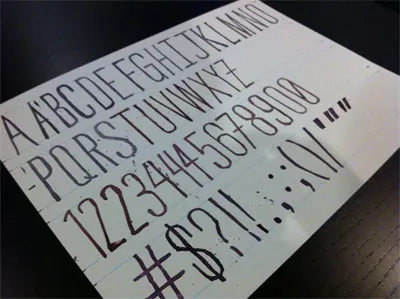 AÄBCDEFGHIJKLMNO
PQRSTUVWXYZ
12234445678900
#$?!!.:;()/'"'"